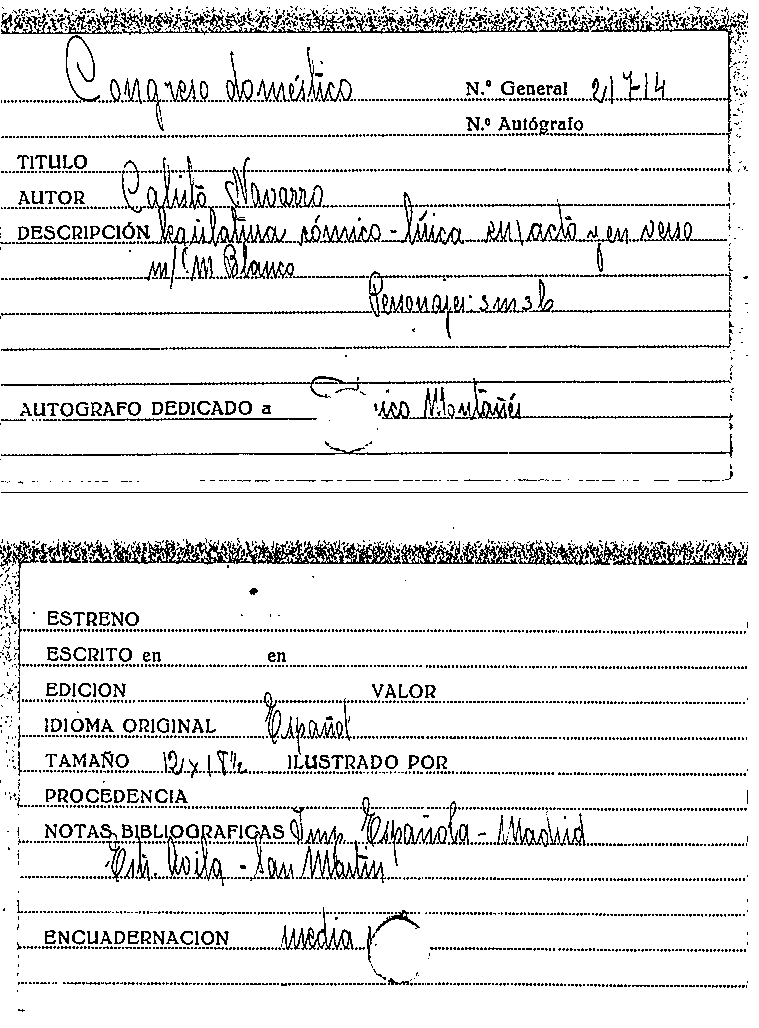 Congreso doméstico N.º General 21714
N.º Autógrafo
TITULO
AUTOR Calisto Navarro
DESCRIPCIÓN legislatura cómico-lírica en 1 acto y en verso
m/ C M Blanco
Personajes: 3 m 3 h
AUTOGRAFO DEDICADO a Montañés
ESTRENO
ESCRITO en en
EDICION VALOR
IDIOMA ORIGINAL Español
TAMAÑO 12 x 18½ ILUSTRADO POR
PROCEDENCIA
NOTAS BIBLIOGRAFICAS Imp. Española - Madrid
Estr. Avila - San Martín
ENCUADERNACION media